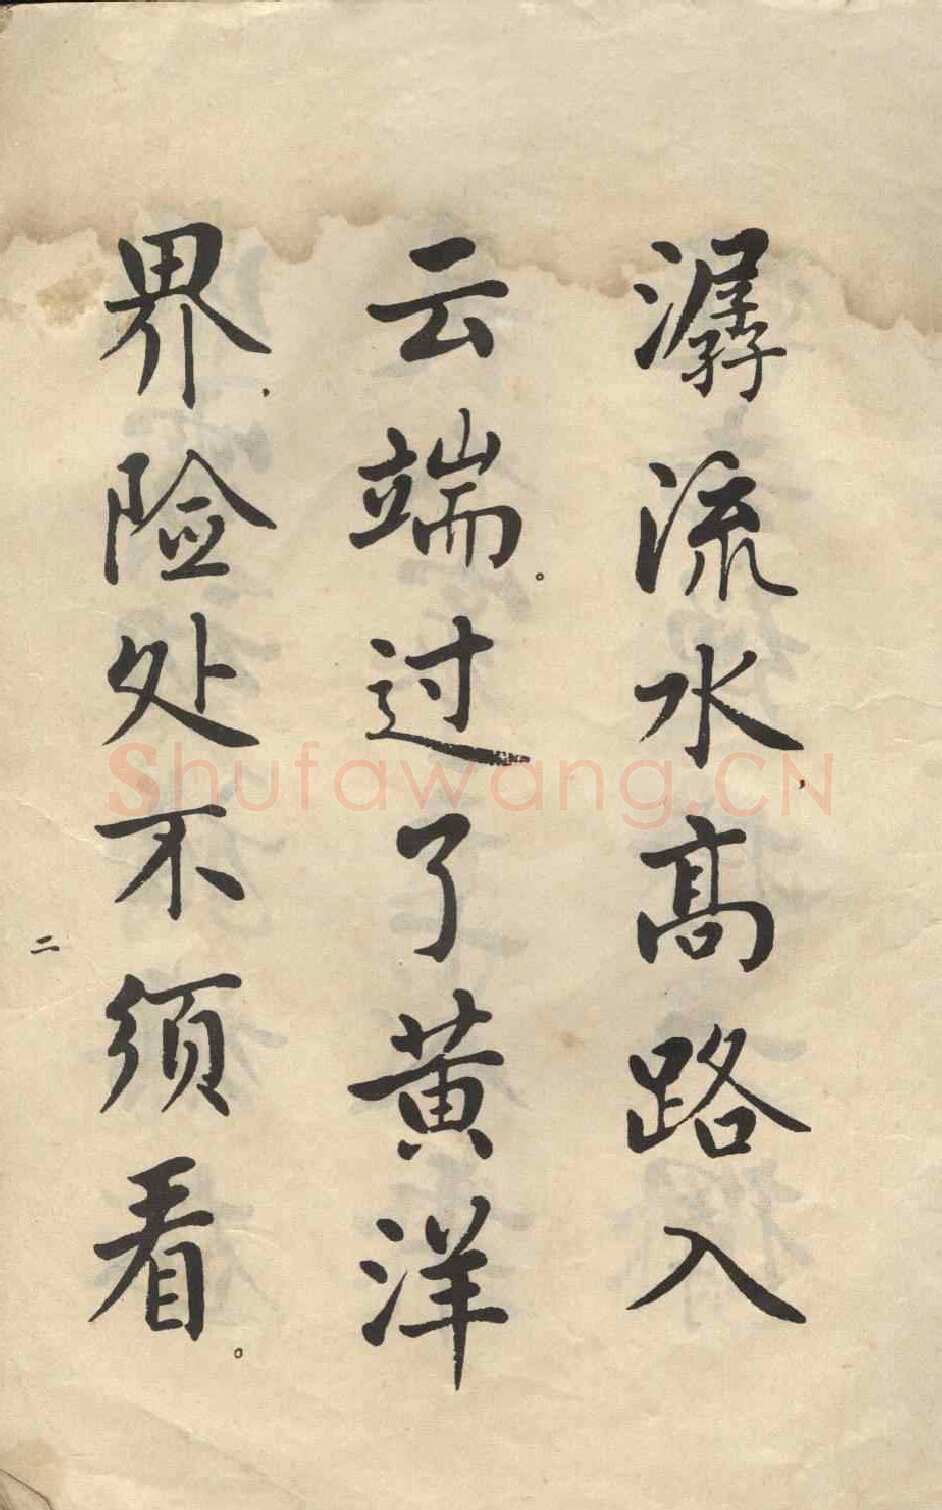 潺流水，高路入
云端。过了黄洋
界，险处不须看。
二
Shufawang.CN